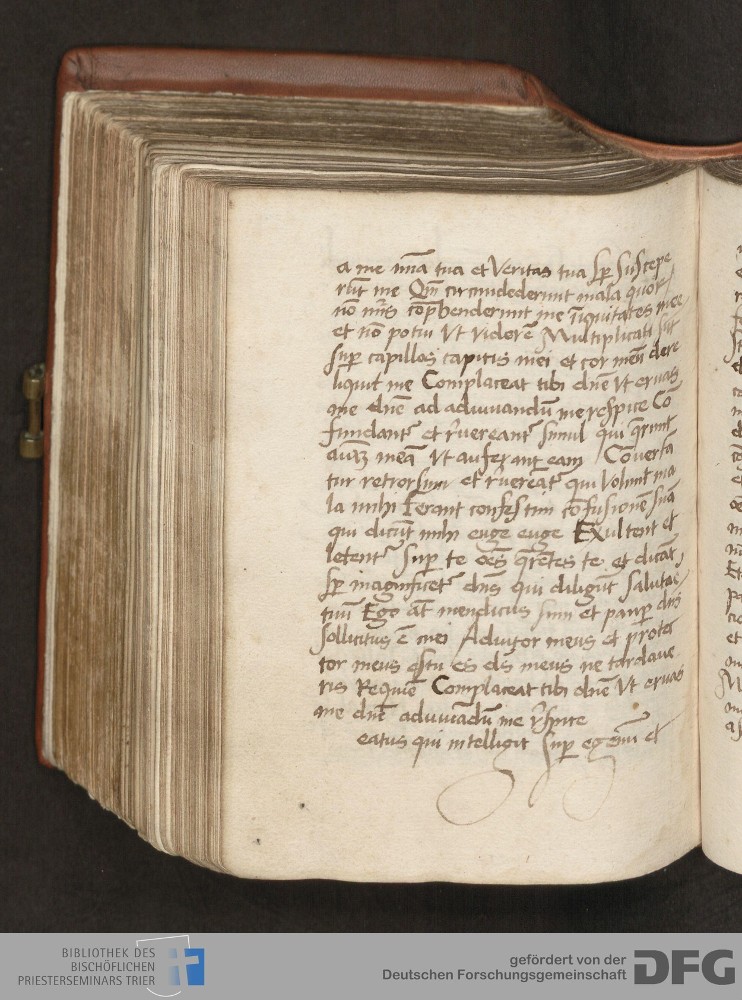 a me mia tua et Veritas tua sp Suscepe
rut me Qm circumdederunt mala quor
no nus coprhenderunt me Iniquitates mee
et no potui Vt viderem Multiplicati sut
sup capillos capitis mei et cor meu dere
liquit me Complaceat tibi dne Vt eruas
me dne ad adiuuandu me respice Co
fundant et reuereant simul qui querunt
aiaz mea Vt auferant eam Conuerta
tur retrorsum et reuereat qui Volunt ma
la mihi Ferant confestim cofusione sua
qui dicut mihi euge euge EXultent et
letent sup te oes queretes te et dicat
sp magnificet dns qui diligut Saluta
tuu Ego at mendicus sum et paup dns
sollicitus e mei Adiutor meus et prote
tor meus estu es ds meus ne tardaue
ris Requie Complaceat tibi dne Vt eruas
me dne adiuuadu me respice
eatus qui intelligit sup egenu et
BIBLIOTHEK DES
BISCHÖFLICHEN
PRIESTERSEMINARS TRIER
gefördert von der
Deutschen Forschungsgemeinschaft
DFG